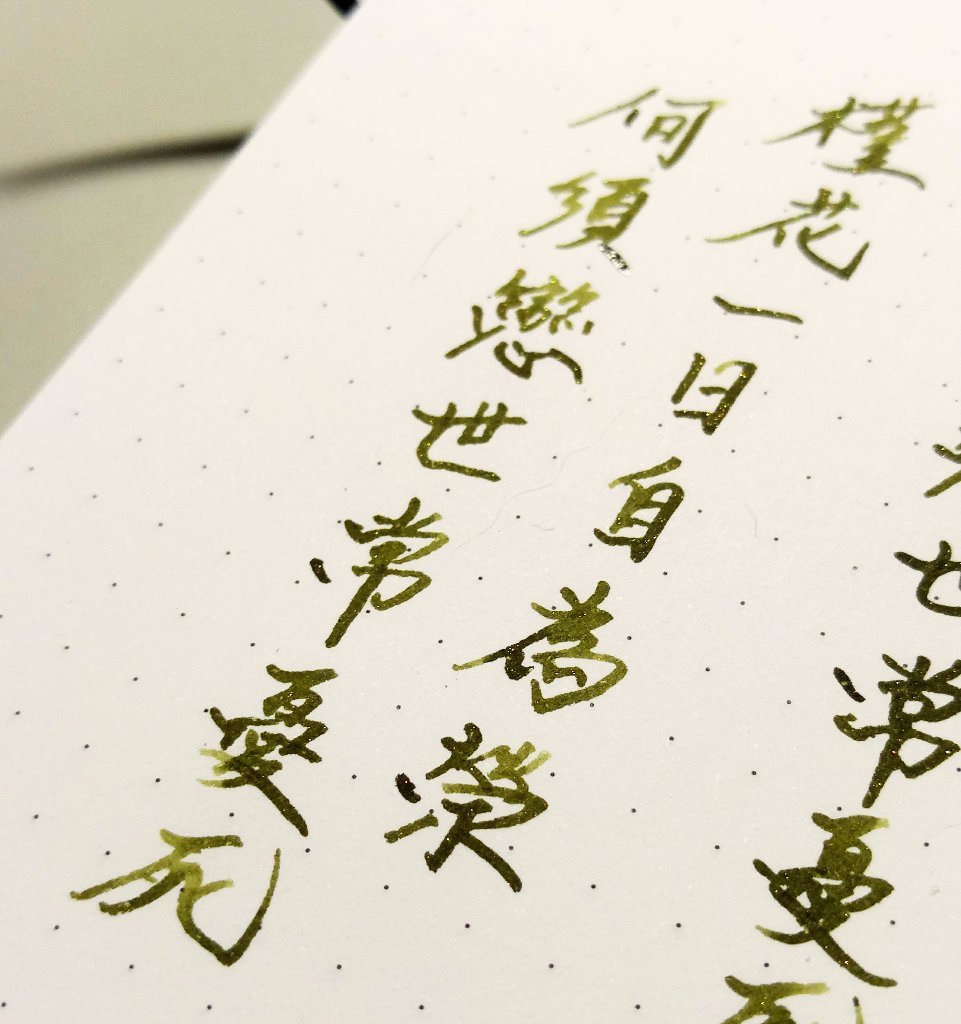 常憂
槿花一日自為榮
何須戀世常憂死